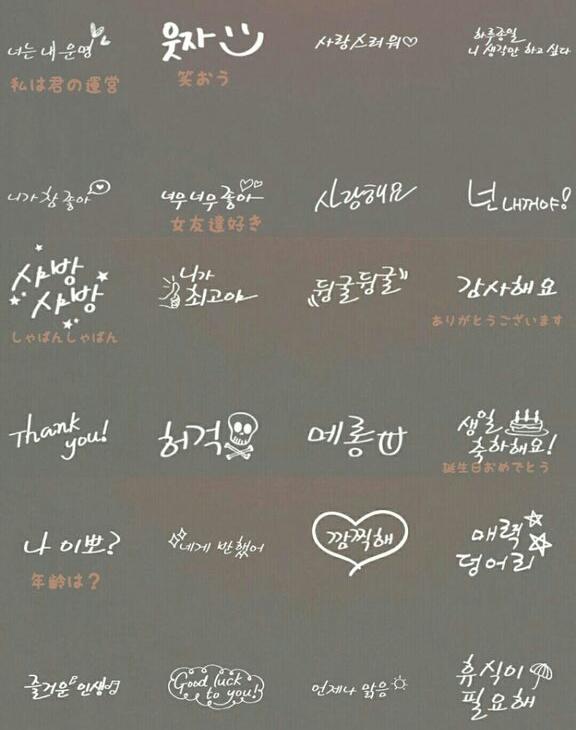 너는 내 운명
私は君の運営
웃자
笑おう
사랑스러워♡
하루종일
니 생각만 하고 싶다
니가 참 좋아
너무 너무 좋아
女友達好き
사랑해요
넌 내꺼야!
샤방
샤방
しゃばんしゃばん
니가
최고야
뒹굴뒹굴
감사해요
ありがとうございます
Thank
you!
허걱
메롱
생일
축하해요!
誕生日おめでとう
나 이뽀?
年齢は?
네게 반했어
깜찍해
매력
덩어리
즐거운 인생
Good luck
to you!
언제나 맑음
휴식이
필요해